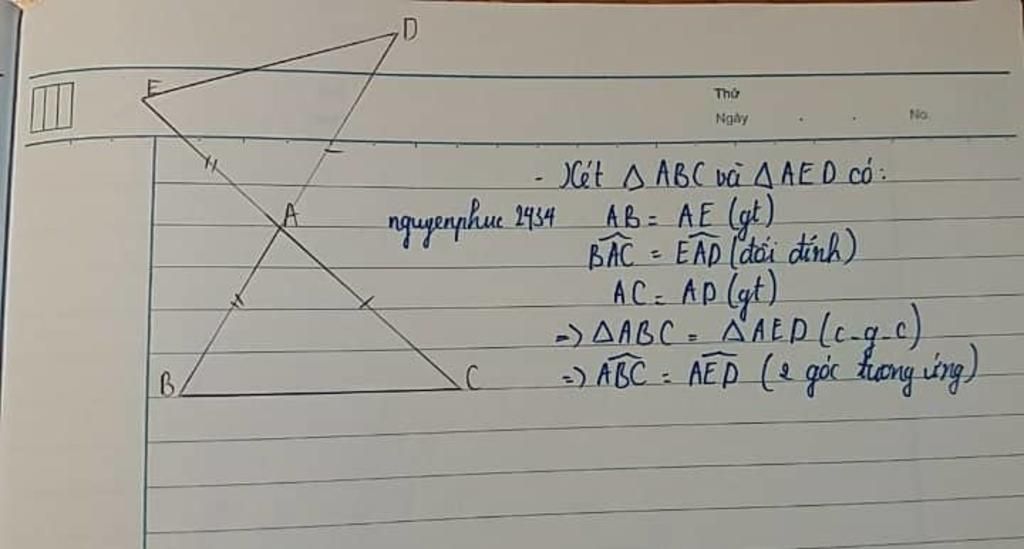 D
E
Thứ
Ngày . . No.
- Xét △ ABC và △ AED có:
A
nguyenphuc 2434
AB = AE (gt)
BAC = EAD (đối đỉnh)
AC = AD (gt)
=) △ABC = △AED (c-g-c)
B
C
=) ABC = AED (2 góc tương ứng)